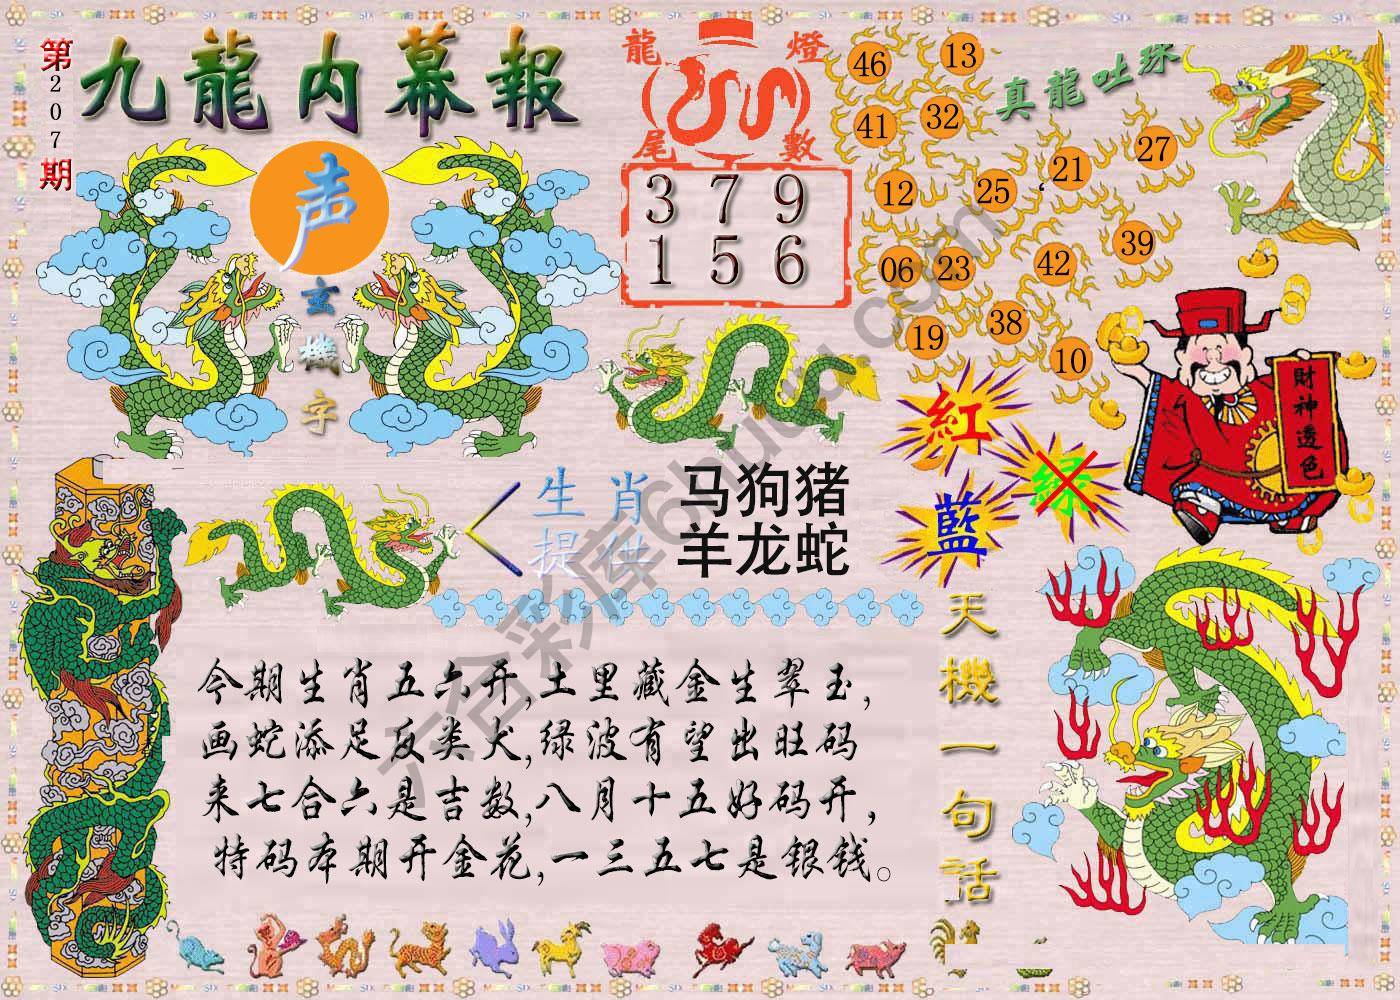 第207期
九龍内幕報
声
玄機字
龍燈
尾數
3 7 9
1 5 6
真龍吐珠
46
13
41
32
12
25
21
27
06
23
42
39
19
38
10
財神透色
紅
绿
藍
生肖
提供
马狗猪
羊龙蛇
天機一句話
今期生肖五六开,土里藏金生翠玉,
画蛇添足反类犬,绿波有望出旺码
来七合六是吉数,八月十五好码开,
特码本期开金花,一三五七是银钱。
六合彩库6huud.com